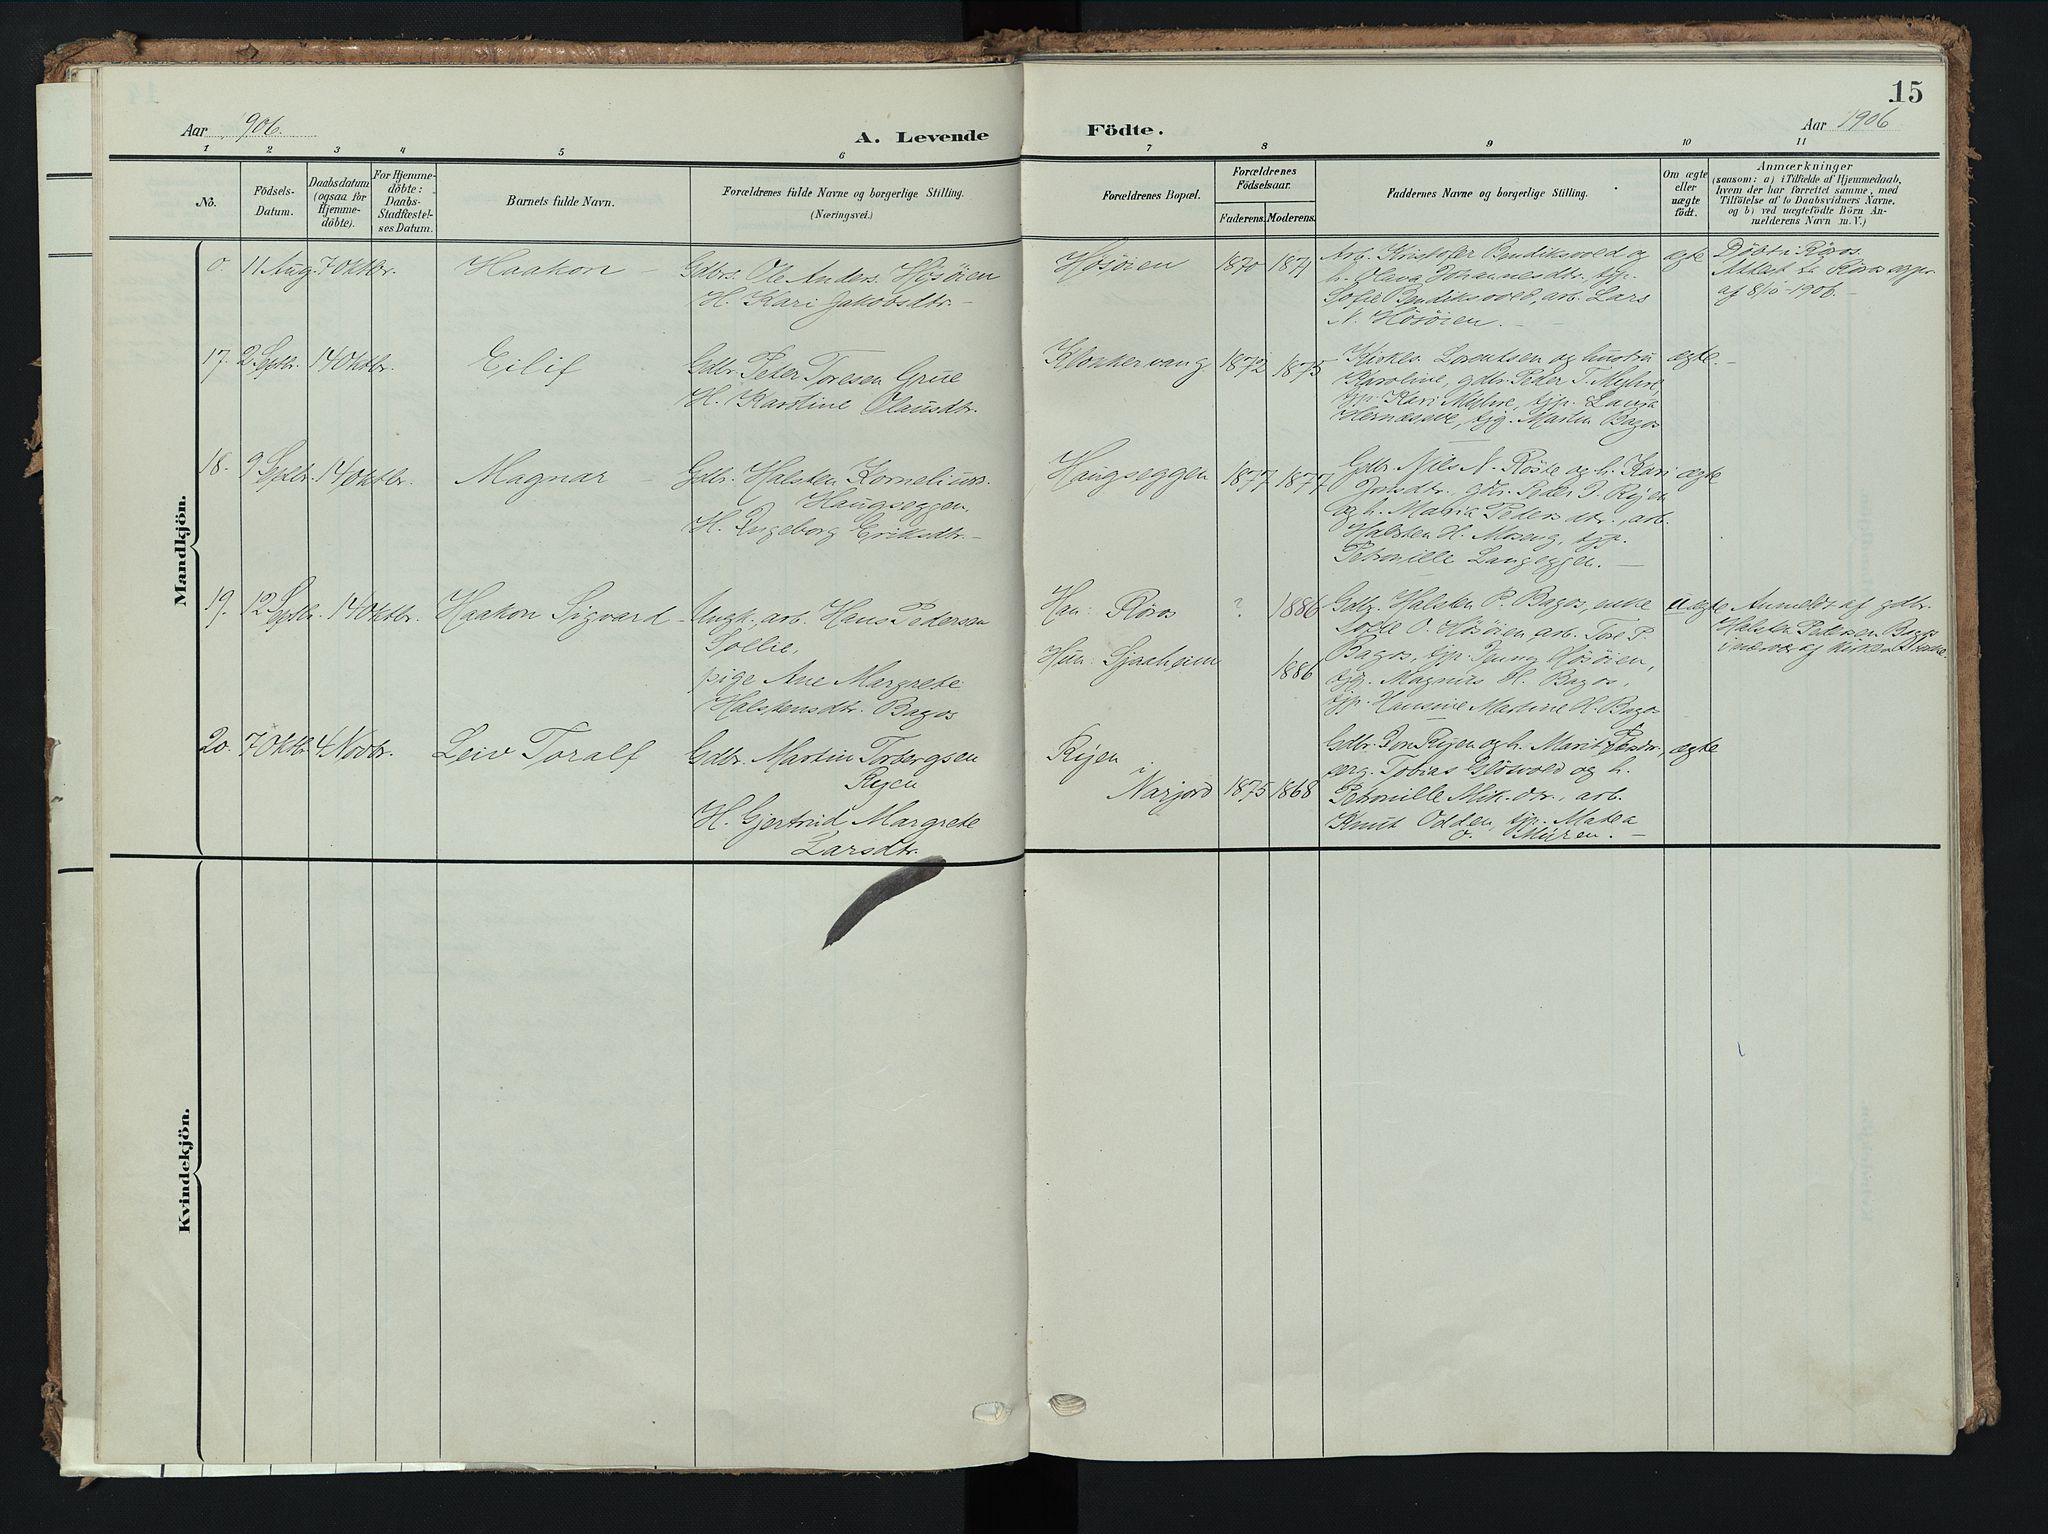 15
Aar 906.
A. Levende
Födte.
Aar 1906
1 2 3 4 5 6 7 8 9 10 11
No.
Födsels-Datum.
Daabsdatum (ogsaa for Hjemme-döbte).
For Hjemme-döbte: Daabs-Stadfæstel-ses Datum.
Barnets fulde Navn.
Forældrenes fulde Navne og borgerlige Stilling.
(Næringsvei.)
Forældrenes Bopæl.
Forældrenes Födselsaar.
Faderens. Moderens.
Faddernes Navne og borgerlige Stilling.
Om ægte eller uægte födt.
Anmærkninger
(saasom: a) i Tilfælde af Hjemmedaab,
hvem der har forrettet samme, med
Tilföielse af to Daabsvidners Navne,
og b) ved uægtefödte Börn An-
melderens Navn m. V.)
Mandkjön.
0. 11 Aug. 7 Oktbr. Haakon –
Gdbr. Ole Anders. Hösöien
H. Kari Jakobsdtr. –
Hösöien 1870 1871
Arb. Kristofer Bendiksvold og
h. Olava Johannesdtr. tjp.
Sofie Bendiksvold, arb. Lars
N. Hösöien. –
ægte
Döbt i Röros.
Attest fra Röros
af 8/10 – 1906. –
17. 2 Septbr. 14 Oktbr. Eilif
Gdbr. Peter Toresen Grue
H. Karoline Olausdtr.
Klokkervang 1872 1875
Kirkes. Lorentsen og hustru
Karoline, gdbr. Peder T. Myhre,
tjp. Kari Myhre, tjp.
tjg. Martin Bagos
ægte. –
18. 9 Septbr. 14 Oktbr. Magnar –
Gdbr. Halsten Kornelius.
Haugseggen,
H. Ingeborg Eriksdtr. –
Haugseggen 1877 1877
Gdbr. Nils N. Röste og h. Kari
Jonsdtr., gdbr. Peder J. Ryen
og h. Maria Pedersdtr., arb.
Halsten H. Moseng, tjp.
Petronille Langeggen. –
ægte
19. 12 Septbr. 14 Oktbr. Haakon Sigvard –
Ungk. arb. Hans Pedersen
Sollie,
pige Ane Margrete
Halstensdtr. Bagos
Han: Röros ? 1886
Hun: Sjaaheim 1886
Gdbr. Halsten P. Bagos, enke
O. Hösöien, arb. Tore P.
Bagos, tjp. Jenny Hösöien,
tjg. Magnus H. Bagos,
tjp. Hansine Martine H. Bagos
uægte
Anmeldt af gdbr.
Halsten Pedersen Bagos
20. 7 Oktbr. 4 Novbr. Leiv Toralf
Gdbr. Martin Torbergsen
Ryen
H. Gjertrud Margrete
Larsdtr.
Ryen
i
Narjord 1875 1868
Gdbr. Jon Ryen og h. Marit Persdr,
Tobias Glösvold og h.
Petronille Mik.dtr., arb.
Knut Odden, tjp. Matea
O. Myren. –
ægte
Kvindekjön.